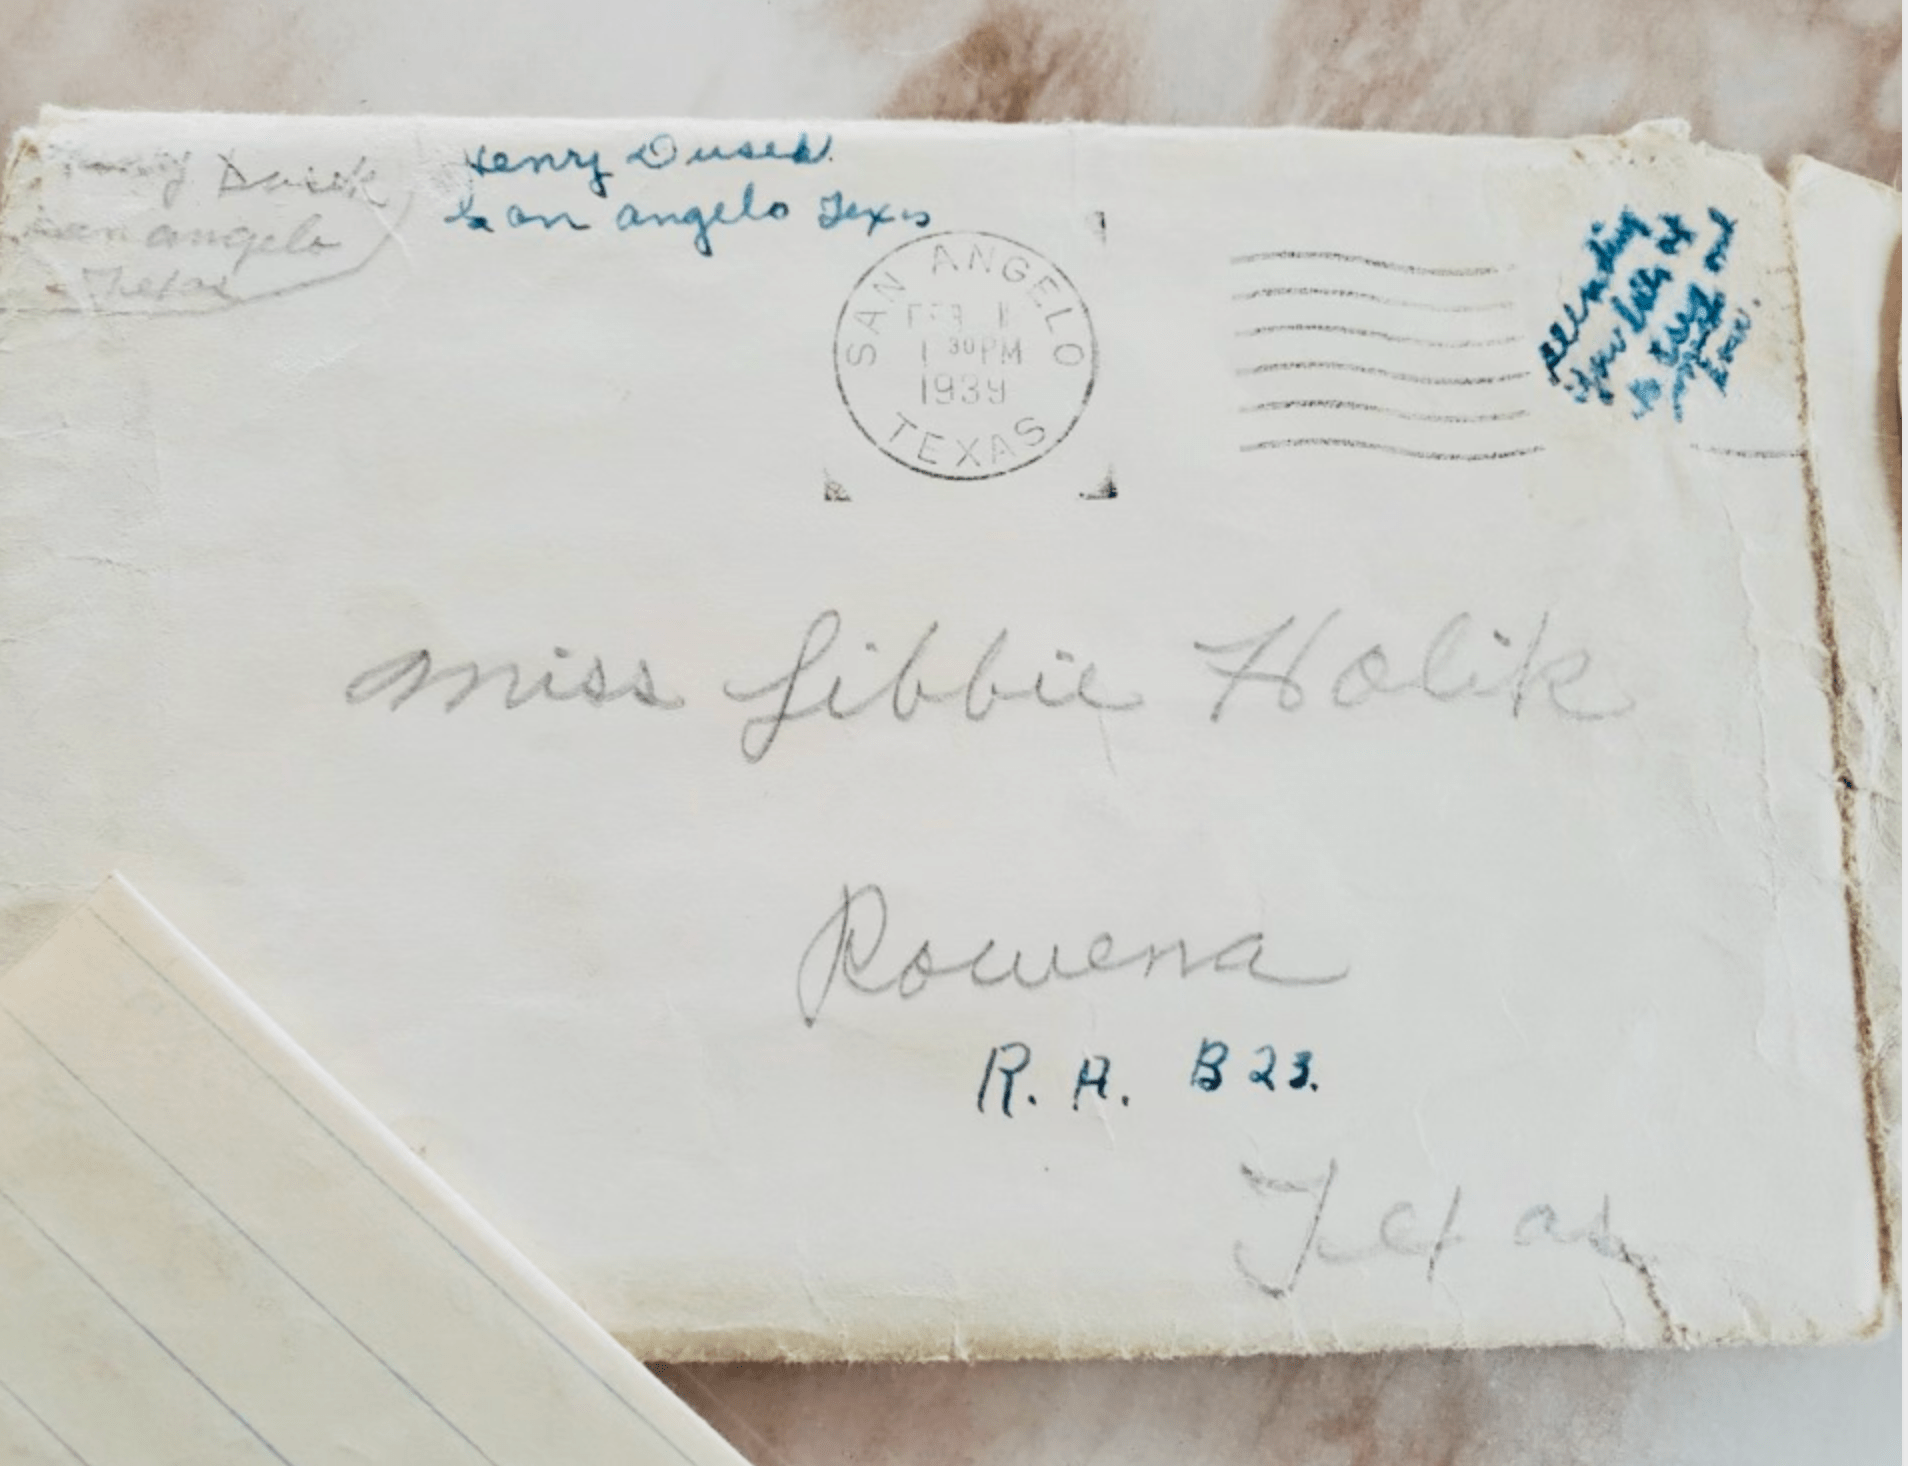 Dusek
San angelo
Texas
Henry Dusek.
San angelo Texas
SAN ANGELO
FEB
1 30 PM
1939
TEXAS
Miss Libbie Holik
Rowena
R. R. B 23.
Texas